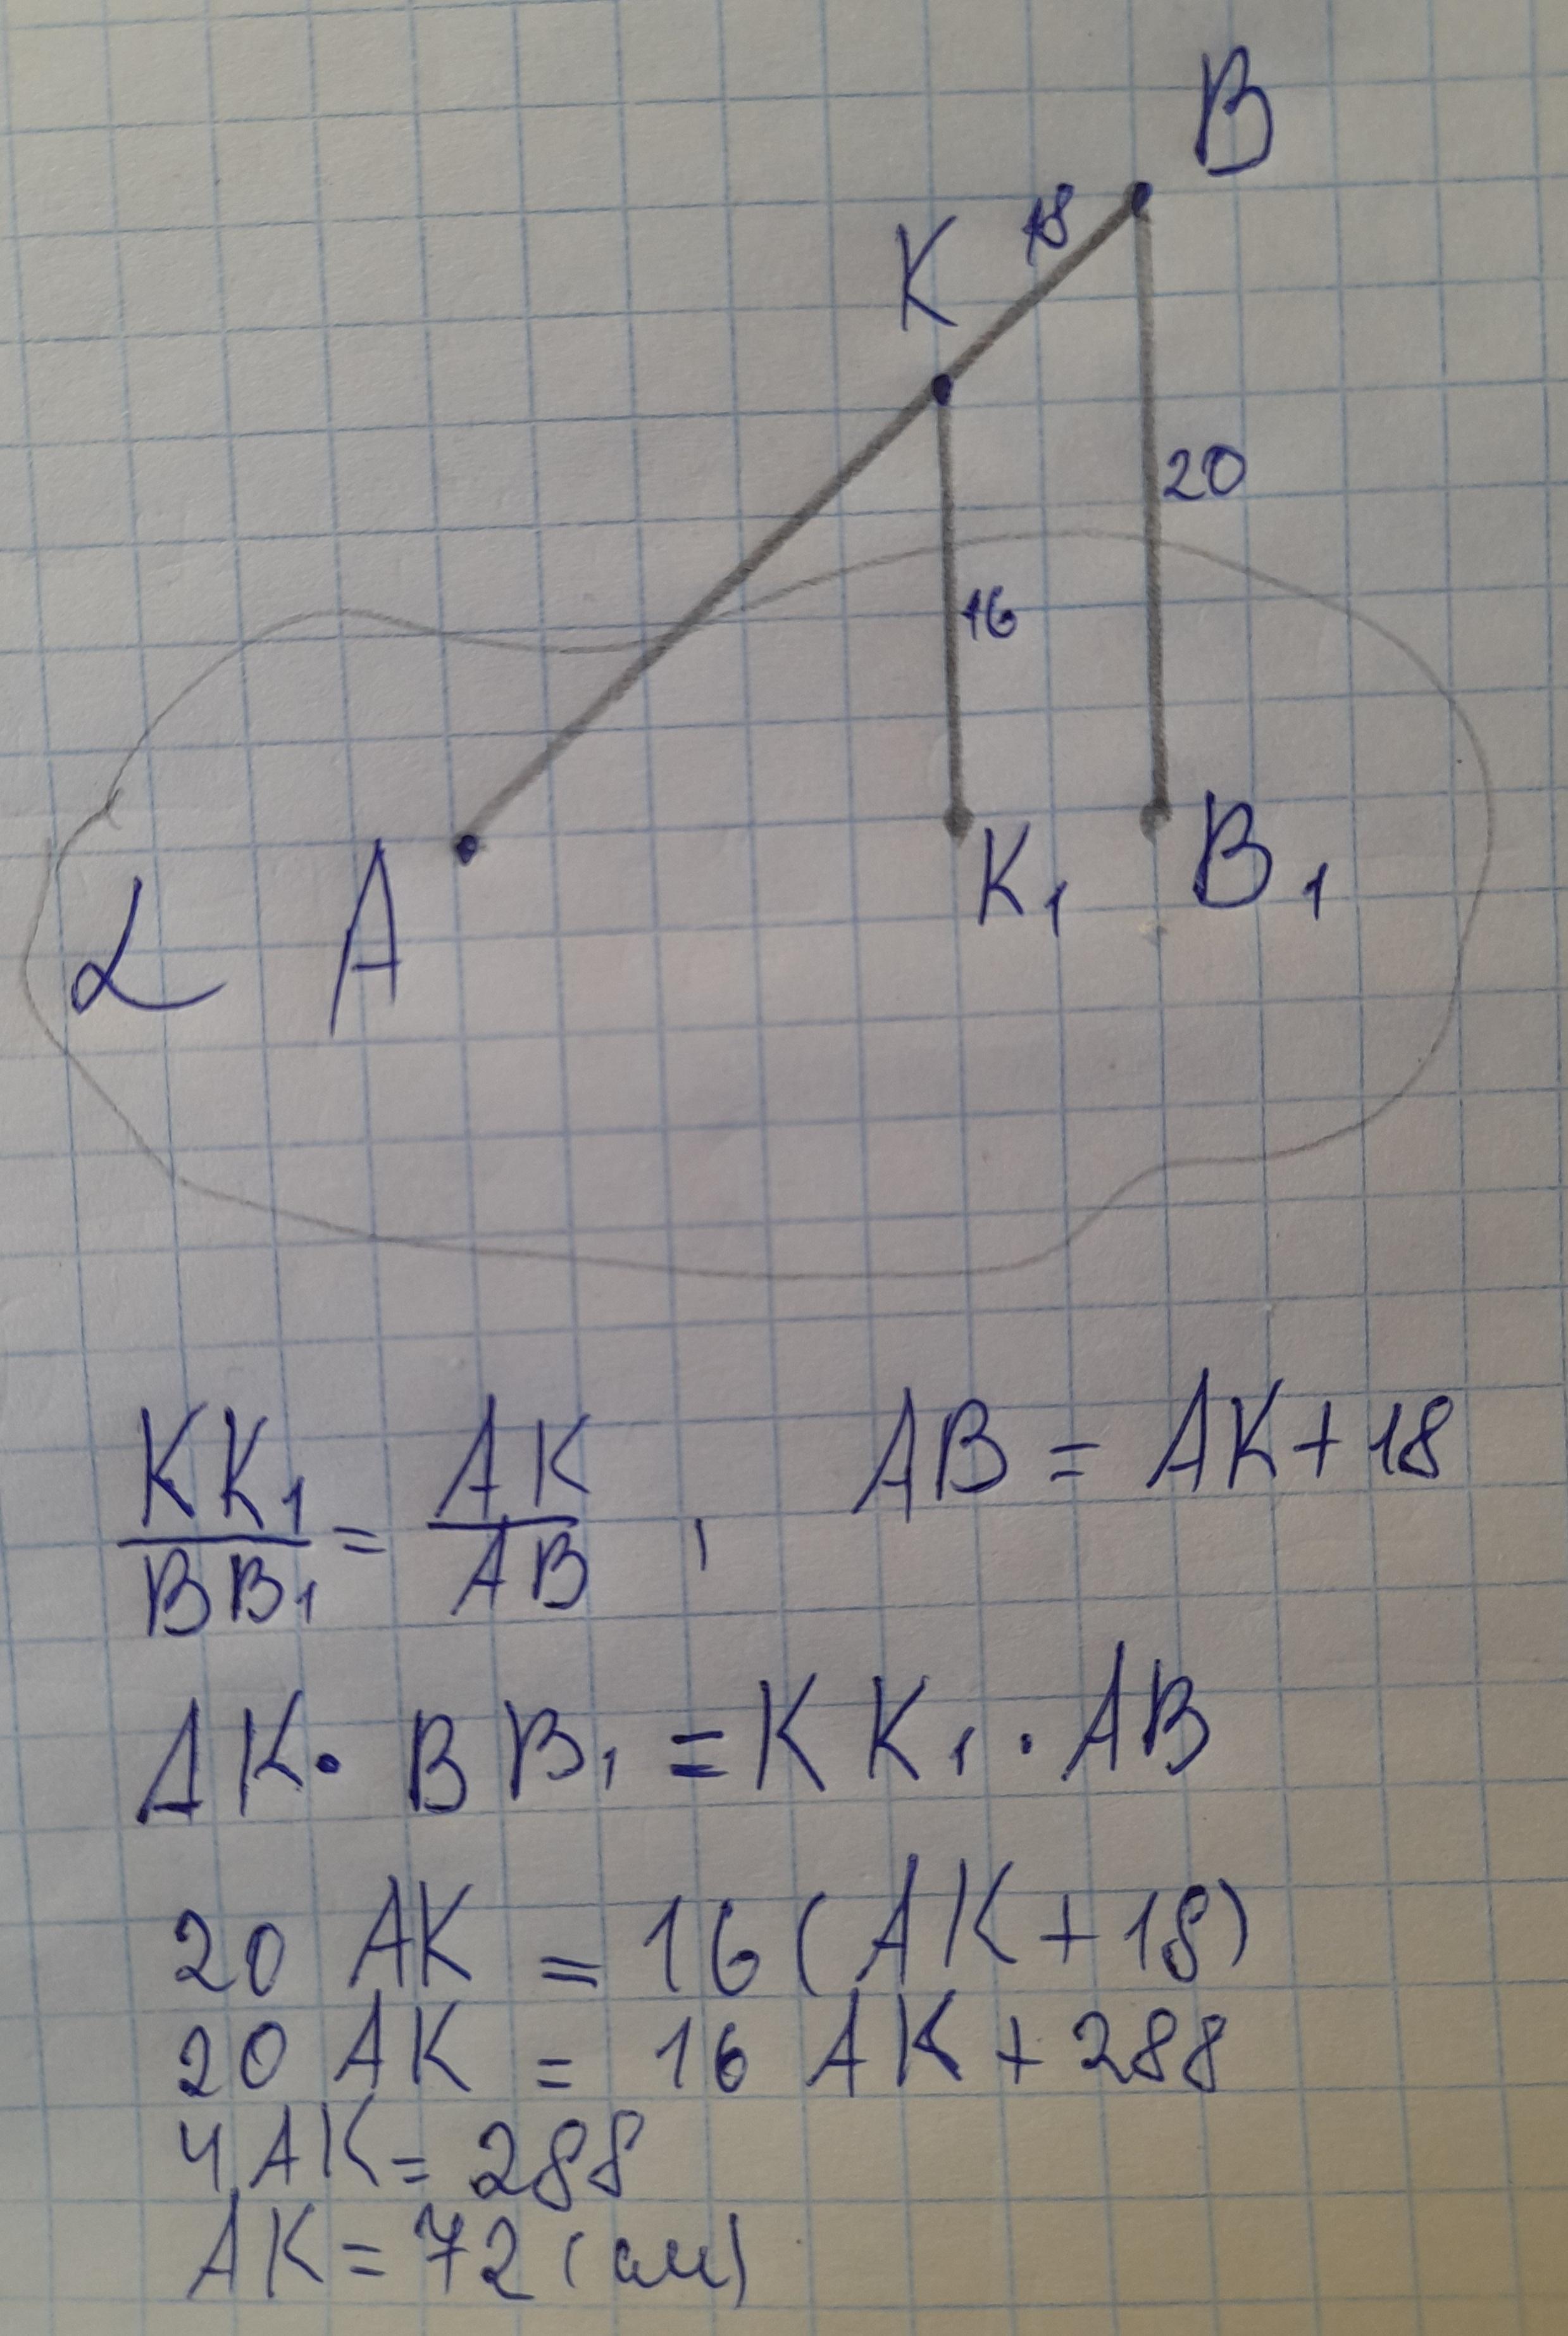 B
K
18
20
16
A
K₁
B₁
α
KK₁/BB₁ = AK/AB , AB = AK + 18
AK · BB₁ = KK₁ · AB
20 AK = 16 (AK + 18)
20 AK = 16 AK + 288
4 AK = 288
AK = 72 (см)